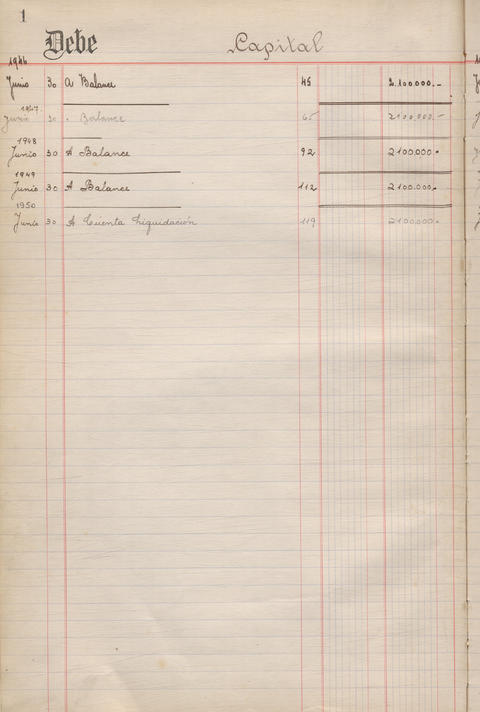 1
Debe Capital
1946
Junio 30 A Balance 45 2.100.000.-
1947
Junio 30 " Balance 65 2100.000.-
1948
Junio 30 A Balance 92 2100.000.-
1949
Junio 30 A Balance 112 2100.000.-
1950
Junio 30 A Cuenta Liquidación 119 2100.000.-